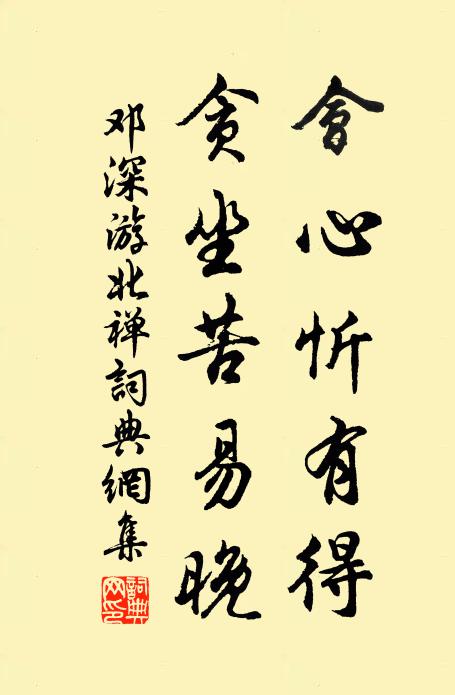 會心忻有得
貪坐苦易晚
邓深游北禅詞典網集
詞典网印